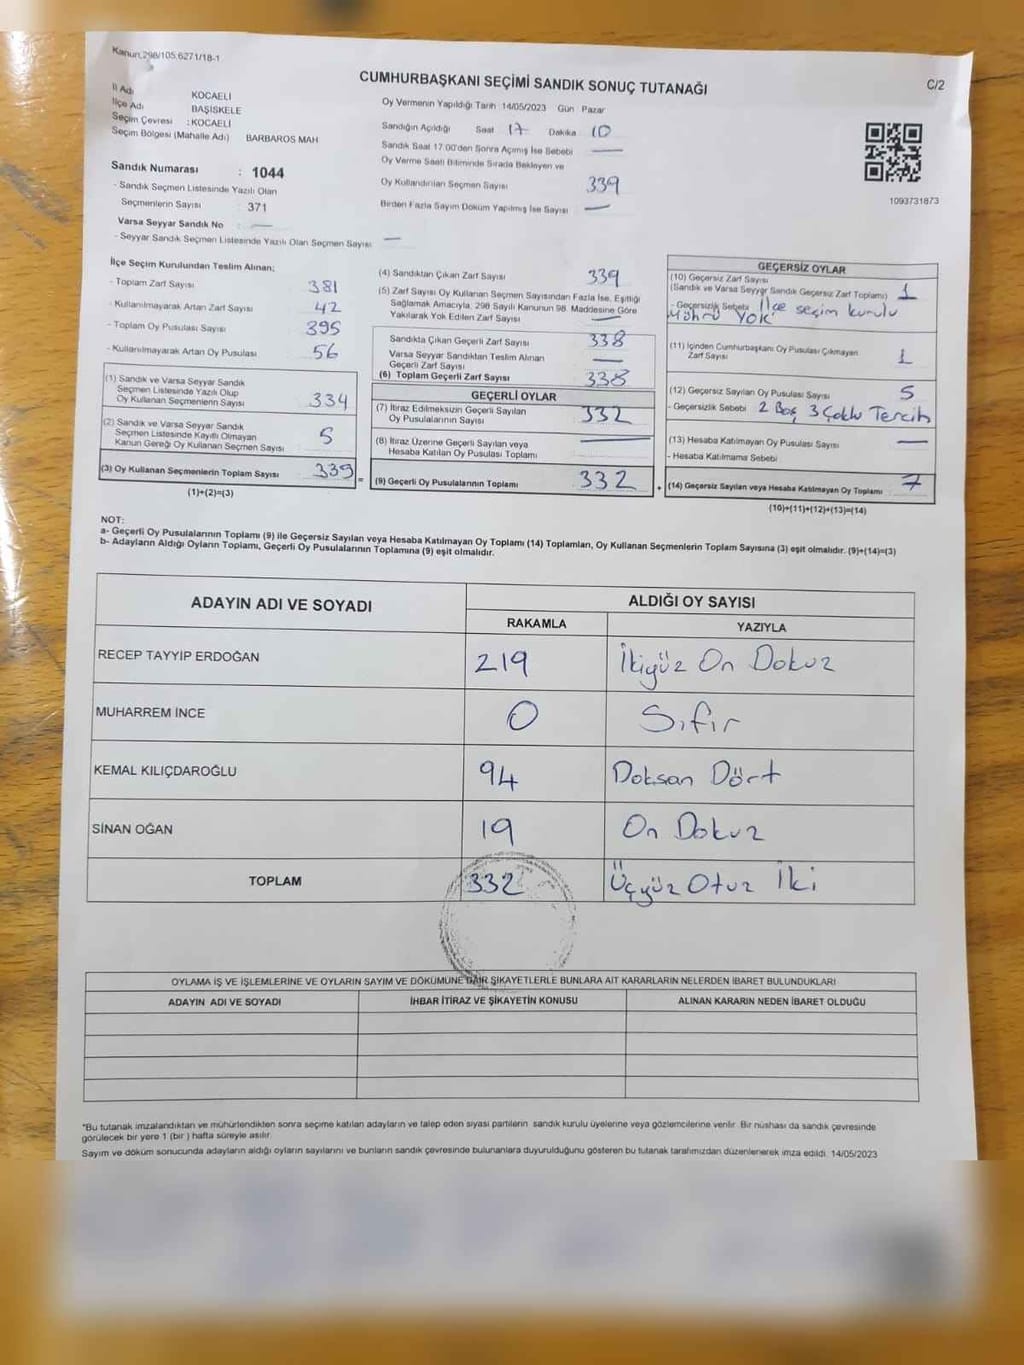 Kanun.298/105.6271/18-1
CUMHURBAŞKANI SEÇİMİ SANDIK SONUÇ TUTANAĞI
C/2
İl Adı KOCAELİ
İlçe Adı BAŞİSKELE
Seçim Çevresi : KOCAELİ
Seçim Bölgesi (Mahalle Adı) BARBAROS MAH
Sandık Numarası : 1044
- Sandık Seçmen Listesinde Yazılı Olan
Seçmenlerin Sayısı 371
Varsa Seyyar Sandık No : —
- Seyyar Sandık Seçmen Listesinde Yazılı Olan Seçmen Sayısı —
Oy Vermenin Yapıldığı Tarih 14/05/2023 Gün Pazar
Sandığın Açıldığı Saat 17 Dakika 10
Sandık Saat 17:00'den Sonra Açımış İse Sebebi —
Oy Verme Saati Bitiminde Sırada Bekleyen ve
Oy Kullandırılan Seçmen Sayısı 339
Birden Fazla Sayım Döküm Yapılmış İse Sayısı —
1093731873
İlçe Seçim Kurulundan Teslim Alınan;
- Toplam Zarf Sayısı 381
- Kullanılmayarak Artan Zarf Sayısı 42
- Toplam Oy Pusulası Sayısı 395
- Kullanılmayarak Artan Oy Pusulası 56
(1) Sandık ve Varsa Seyyar Sandık
Seçmen Listesinde Yazılı Olup
Oy Kullanan Seçmenlerin Sayısı 334
(2) Sandık ve Varsa Seyyar Sandık
Seçmen Listesinde Kayıtlı Olmayan
Kanun Gereği Oy Kullanan Seçmen Sayısı 5
(3) Oy Kullanan Seçmenlerin Toplam Sayısı 339 =
(1)+(2)=(3)
(4) Sandıktan Çıkan Zarf Sayısı 339
(5) Zarf Sayısı Oy Kullanan Seçmen Sayısından Fazla İse, Eşitliği
Sağlamak Amacıyla, 298 Sayılı Kanunun 98. Maddesine Göre
Yakılarak Yok Edilen Zarf Sayısı —
Sandıkta Çıkan Geçerli Zarf Sayısı 338
Varsa Seyyar Sandıktan Teslim Alınan
Geçerli Zarf Sayısı —
(6) Toplam Geçerli Zarf Sayısı 338
GEÇERLİ OYLAR
(7) İtiraz Edilmeksizin Geçerli Sayılan
Oy Pusulalarının Sayısı 332
(8) İtiraz Üzerine Geçerli Sayılan veya
Hesaba Katılan Oy Pusulası Toplamı —
(9) Geçerli Oy Pusulalarının Toplamı 332 +
GEÇERSİZ OYLAR
(10) Geçersiz Zarf Sayısı
(Sandık ve Varsa Seyyar Sandık Geçersiz Zarf Toplamı) 1
- Geçersizlik Sebebi İlçe seçim kurulu
Mührü YOK
(11) İçinden Cumhurbaşkanı Oy Pusulası Çıkmayan
Zarf Sayısı 1
(12) Geçersiz Sayılan Oy Pusulası Sayısı 5
- Geçersizlik Sebebi 2 Boş 3 Çoklu Tercih
(13) Hesaba Katılmayan Oy Pusulası Sayısı —
- Hesaba Katılmama Sebebi
(14) Geçersiz Sayılan veya Hesaba Katılmayan Oy Toplamı 7
(10)+(11)+(12)+(13)=(14)
NOT:
a- Geçerli Oy Pusulalarının Toplamı (9) ile Geçersiz Sayılan veya Hesaba Katılmayan Oy Toplamı (14) Toplamları, Oy Kullanan Seçmenlerin Toplam Sayısına (3) eşit olmalıdır. (9)+(14)=(3)
b- Adayların Aldığı Oyların Toplamı, Geçerli Oy Pusulalarının Toplamına (9) eşit olmalıdır.
ADAYIN ADI VE SOYADI ALDIĞI OY SAYISI
RAKAMLA YAZIYLA
RECEP TAYYİP ERDOĞAN 219 İkiyüz On Dokuz
MUHARREM İNCE 0 Sıfır
KEMAL KILIÇDAROĞLU 94 Doksan Dört
SİNAN OĞAN 19 On Dokuz
TOPLAM 332 Üçyüz Otuz İki
OYLAMA İŞ VE İŞLEMLERİNE VE OYLARIN SAYIM VE DÖKÜMÜNE DAİR ŞİKAYETLERLE BUNLARA AİT KARARLARIN NELERDEN İBARET BULUNDUKLARI
ADAYIN ADI VE SOYADI İHBAR İTİRAZ VE ŞİKAYETİN KONUSU ALINAN KARARIN NEDEN İBARET OLDUĞU
*Bu tutanak imzalandıktan ve mühürlendikten sonra seçime katılan adayların ve talep eden siyasi partilerin sandık kurulu üyelerine veya gözlemcilerine verilir. Bir nüshası da sandık çevresinde
görülecek bir yere 1 (bir ) hafta süreyle asılır.
Sayım ve döküm sonucunda adayların aldığı oyların sayılarını ve bunların sandık çevresinde bulunanlara duyurulduğunu gösteren bu tutanak tarafımızdan düzenlenerek imza edildi. 14/05/2023